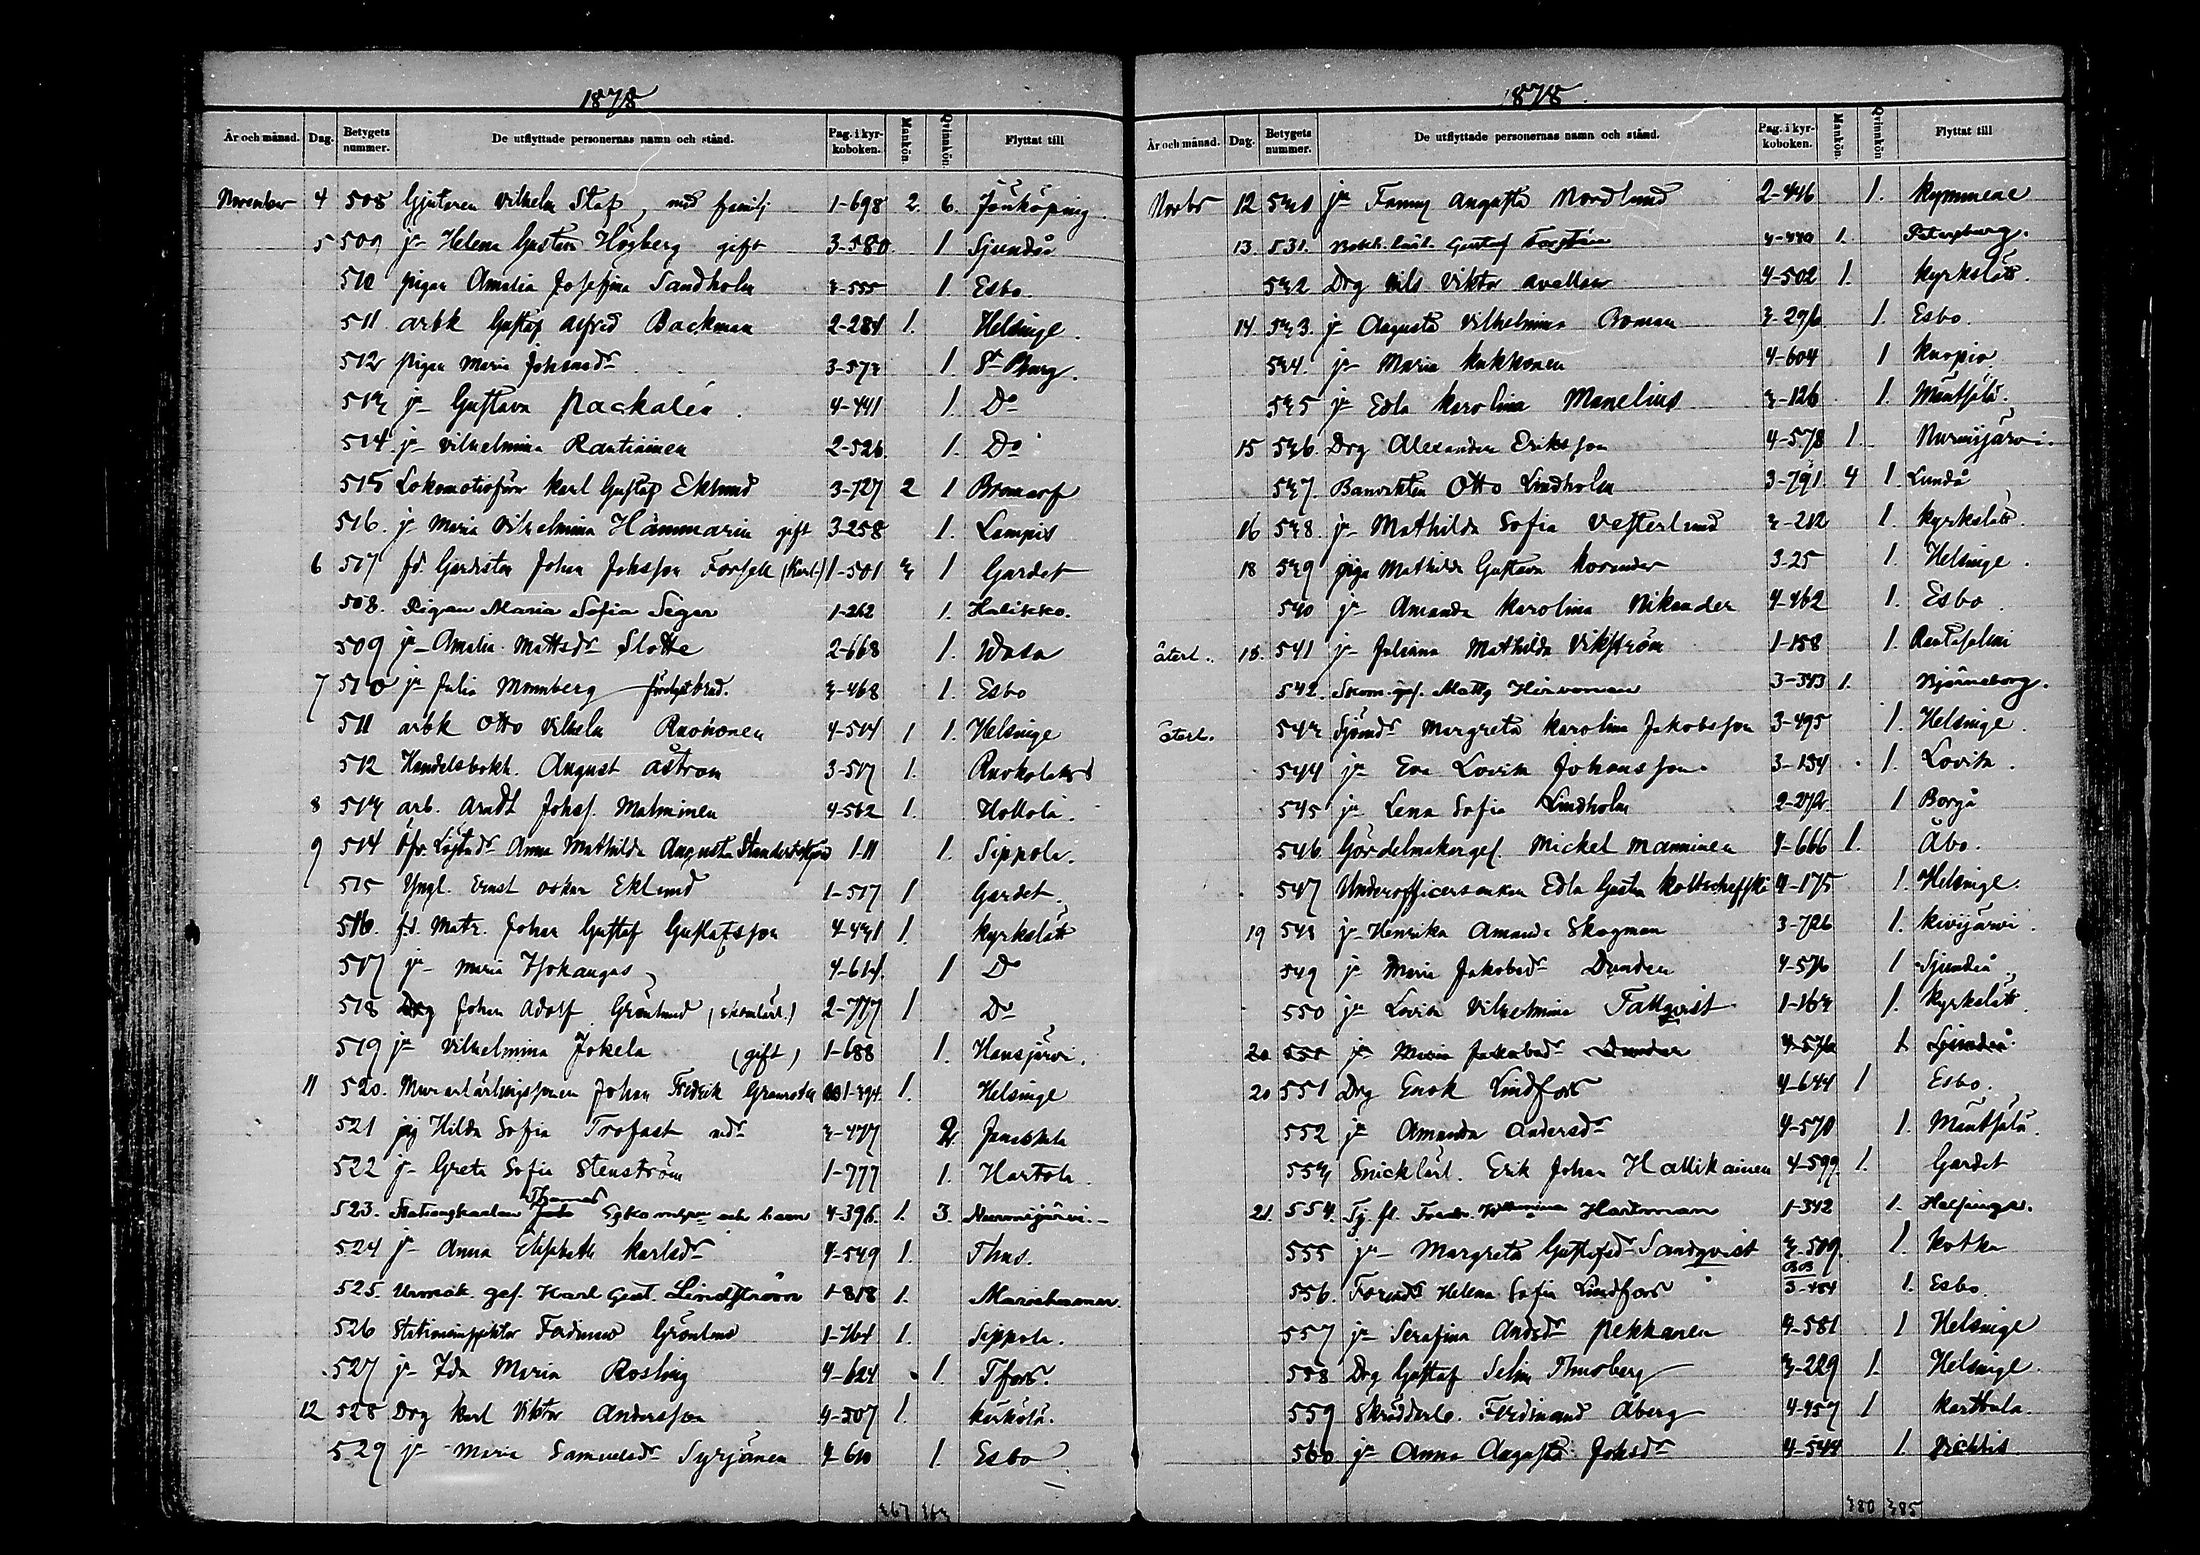 1878
År och månad. Dag. Betygets nummer. De utflyttade personernas namn och stånd. Pag. i kyrkoboken. Mankön. Qvinnkön. Flyttat till
November 4 508 Gjutaren Vilhelm Staf med familj 1-698 2 6. Jönköping.
5 509 jn Helena Gustava Högberg gift 3-580 1 Sjundeå
510 pigan Amalia Josefina Sandholm 3-555 1. Esbo.
511 arbk Gustaf Alfred Backman 2-284 1. Helsinge.
512 pigan Maria Johansdr 3-573 1. St Pburg.
513 jn Gustava Packalén 4-441 1. Do
514 jn Vilhelmina Rautiainen 2-526. 1. Do
515 Lokomotivför Karl Gustaf Eklund 3-727 2 1 Bromarf
516. jn Maria Vilhelmina Hammarin gift 3-258 1. Lampis
6 517 fd. Gardisten Johan Johsson Forsell (Karl-) 1-501 3 1 Gardet
508. Pigan Maria Sofia Seger 1-262 1. Halikko.
509 jn Amalia Mattsdr Slotte 2-668 1. Wasa
7 510 jn Julia Monnberg 3-468 1. Esbo
511 arbk Otto Vilhelm Ruohonen 4-514 1 1. Helsinge
512 Handelsbokh. August Åström 3-517 1. Ruokolaks
8 513 arb. Arndt Johss. Malminen 4-562 1. Hollola.
9 514 Anna Mathilda Augusta 1-11 1. Sippola.
515 Yngl. Ernst Oskar Eklund 1-517 1 Gardet.
516. fd. Matr. Johan Gustaf Gustafsson 4-431 1. Kyrkslätt
517 jn Maria 4-614. 1 Do
518 Drg Johan Adolf Grönlund (skomlärl.) 2-777 1 Do
519 jn Vilhelmina Jokela (gift) 1-688 1. Hausjärvi.
11 520. Johan Fredrik 1-394. 1. Helsinge
521 pig Hilda Sofia Trofast 3-477 2 Janakkala
522 jn Greta Sofia Stenström 1-777 1. Hartola.
523. Stationskarlen Thomas 4-396. 1. 3. Nurmijärvi.
524 jn Anna Elisabeth Karlsdr 4-549 1. Thus.
525. Urmak. ges. Karl Gust. Lindström 1-818 1. Mariehamn.
526 Stationsinspektor Ferdinand Grönlund 1-764 1. Sippola.
527 jn Ida Maria Rosling 4-624 1. Tfors.
12 528 Drg Karl Viktor Andersson 4-507 1. Kärkölä.
529 jn Maria Samuelsdr Syrjänen 4-610 1. Esbo
367 363
1878.
År och månad. Dag. Betygets nummer. De utflyttade personernas namn och stånd. Pag. i kyrkoboken. Mankön. Qvinnkön Flyttat till
Novbr 12 530 jn Fanny Augusta Nordlund 2-446 1. Kymmene
13. 531. Gustaf Forström 3-440 1. Petersburg.
532 Drg Nils Viktor Avellan 4-502 1. Kyrkslätt.
14. 533. jn Augusta Vilhelmina Boman 3-296 1. Esbo.
534. jn Maria Kukkonen 4-604 1 Kuopio
535 jn Edla Karolina Manelius 3-126 1. Mäntsälä.
15 536. Drg Alexander Eriksson 4-578 1. Nurmijärvi.
537. Banvakten Otto Lindholm 3-791 4 1. Lundå
16 538. jn Mathilda Sofia Vesterlund 3-212 1. Kyrkslätt.
18 539 piga Mathilda Gustava Korander 3-25 1. Helsinge.
540 jn Amanda Karolina Nikander 4-462 1. Esbo.
återl. 18. 541 jn Juliana Mathilda Vikström 1-158 1. Rantasalmi
542. Skom.ges. Matts Hirvonen 3-343 1. Björneborg.
återl. 543 Sjömdr Margreta Karolina Jakobsson 3-495 1. Helsinge.
544 jn Eva Lovisa Johansson 3-134 1. Lovisa.
545 jn Lena Sofia Lindholm 2-272 1 Borgå
546 Gördelmakareges. Mickel Manninen 1-666 1. Åbo.
547 Underofficersenkan Edla Gustava 4-175 1. Helsinge.
19 548 jn Henrika Amanda Skogman 3-726 1. Kivijärvi.
549 jn Maria Jakobsdr Dunder 4-576 1 Sjundeå.
550 jn Lovisa Vilhelmina Fallqvist 1-163 1. Kyrkslätt.
20 551 jn Maria Jakobsdr Dunder 4-576 1 Sjundeå
20 551 Drg Enok Lindfors 4-644 1 Esbo.
552 jn Amanda Andersdr 4-570 1. Mäntsälä.
553 Snickлärl. Erik Johan Hallikainen 4-599. 1. Gardet
21. 554. Tj. fl. Fredr. Wilhelmina Hartman 1-342 1. Helsinge.
555 jn Margreta Gustafsdr Sandqvist 3-509. 1. Kotka
BB
556. Helena Sofia Lindfors 3-484 1. Esbo.
557 jn Serafina Andsdr Pekkanen 4-581 1 Helsinge
558 Drg Gustaf Selim Thusberg 3-229 1. Helsinge.
559 Skräddarl. Ferdinand Åberg 4-457 1 Karttula.
560 jn Anna Augusta Johsdr 4-544 1. Vichtis
380 385